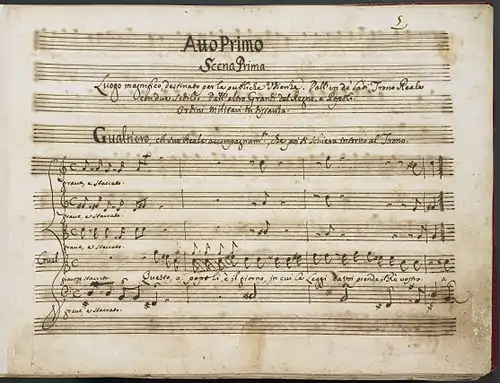 5
Atto Primo
Scena Prima
Luogo magnifico destinato per le publiche Udienze. Dall'un de lati Trono Reale
con due sedili. Dall'altro Grandi del Regno, e Popoli.
Ordini Militari in distanza.
Gualtiero, col suo Reale accompagnam.to, che poi si schiera intorno al Trono.
grave, e staccato.
grave, e staccato.
grave, e staccato.
Gual.
grave, e staccato
Questo, o Popoli è il giorno, in cui le Leggi da voi prende il Re vostro
grave, e staccato.